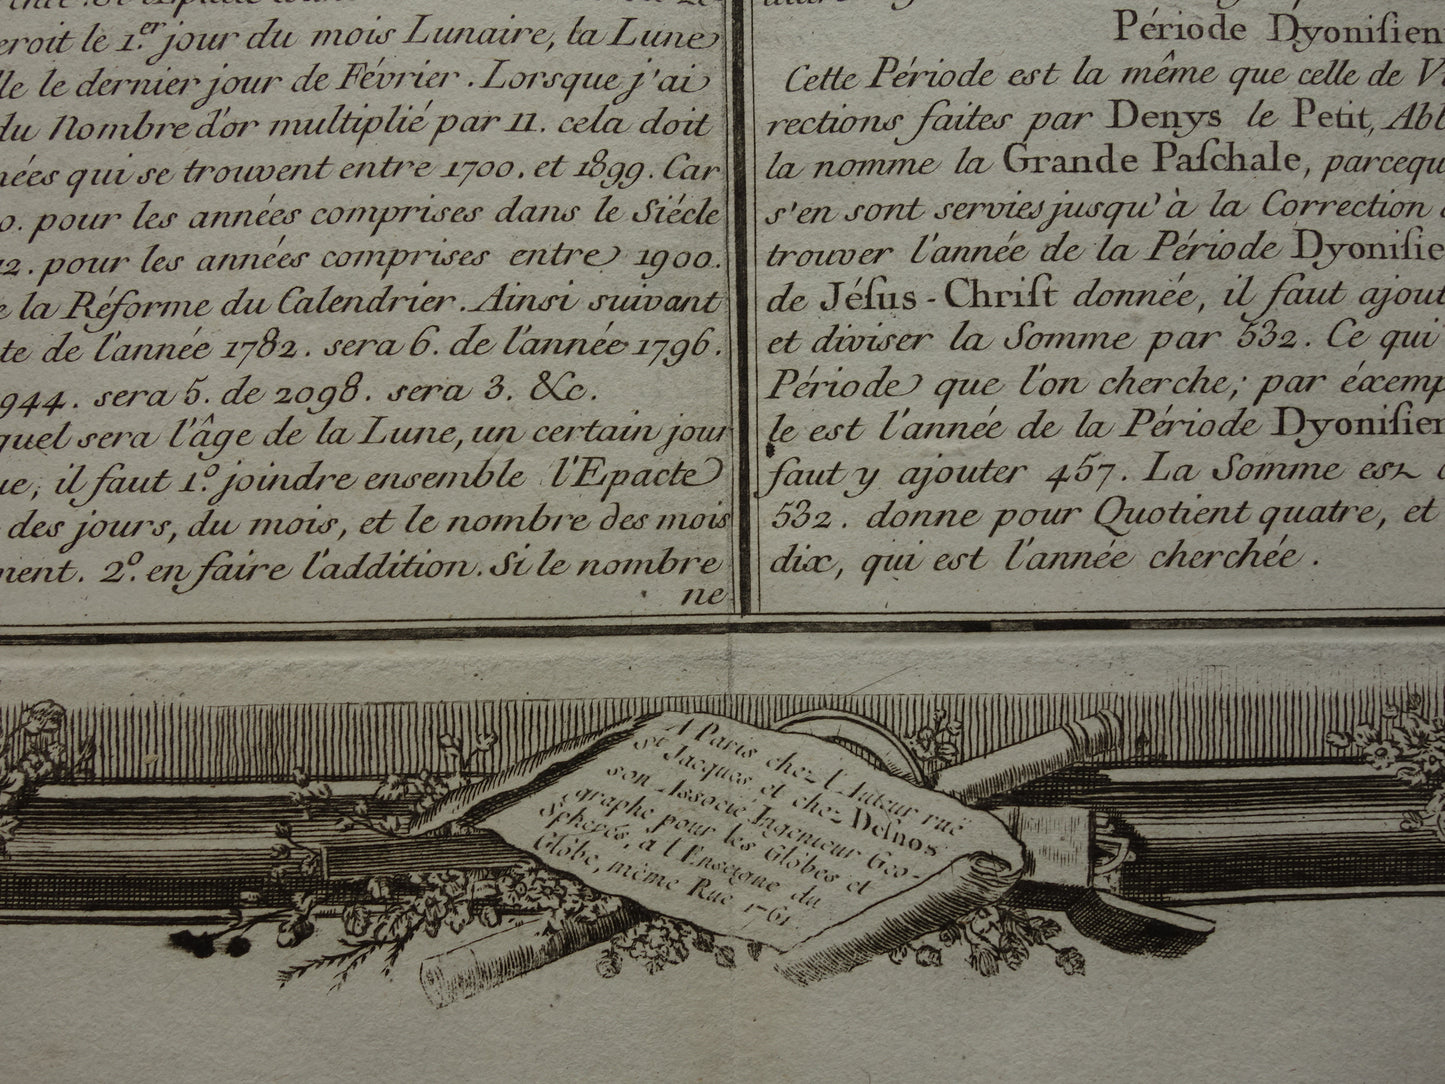 eroit le 1.er jour du mois Lunaire, la Lune
lle le dernier jour de Février. Lorsque j'ai
du Nombre d'or multiplié par 11. cela doit
nées qui se trouvent entre 1700. et 1899. Car
0. pour les années comprises dans le Siécle
12. pour les années comprises entre 1900.
e la Réforme du Calendrier. Ainsi suivant
te de l'année 1782. sera 6. de l'année 1796.
1944. sera 5. de 2098. sera 3. &c.
quel sera l'âge de la Lune, un certain jour
ue, il faut 1.º joindre ensemble l'Epacte
des jours, du mois, et le nombre des mois
ment. 2.º en faire l'addition. Si le nombre
ne
Période Dyoniſien
Cette Période est la même que celle de V
rections faites par Denys le Petit, Abb
la nomme la Grande Paſchale, parcequ
s'en sont servies jusqu'à la Correction
trouver l'année de la Période Dyoniſie
de Jéſus-Chriſt donnée, il faut ajout
et diviser la Somme par 532. Ce qui
Période que l'on cherche; par éxemp
le est l'année de la Période Dyoniſien
faut y ajouter 457. La Somme est
532. donne pour Quotient quatre, et
dix, qui est l'année cherchée.
A Paris chez l'Auteur ruë
St Jacques, et chez Deſnos
son Associé, Ingenieur Geo-
graphe pour les Globes et
Spheres, à l'Enseigne du
Globe, même Rue 1761.